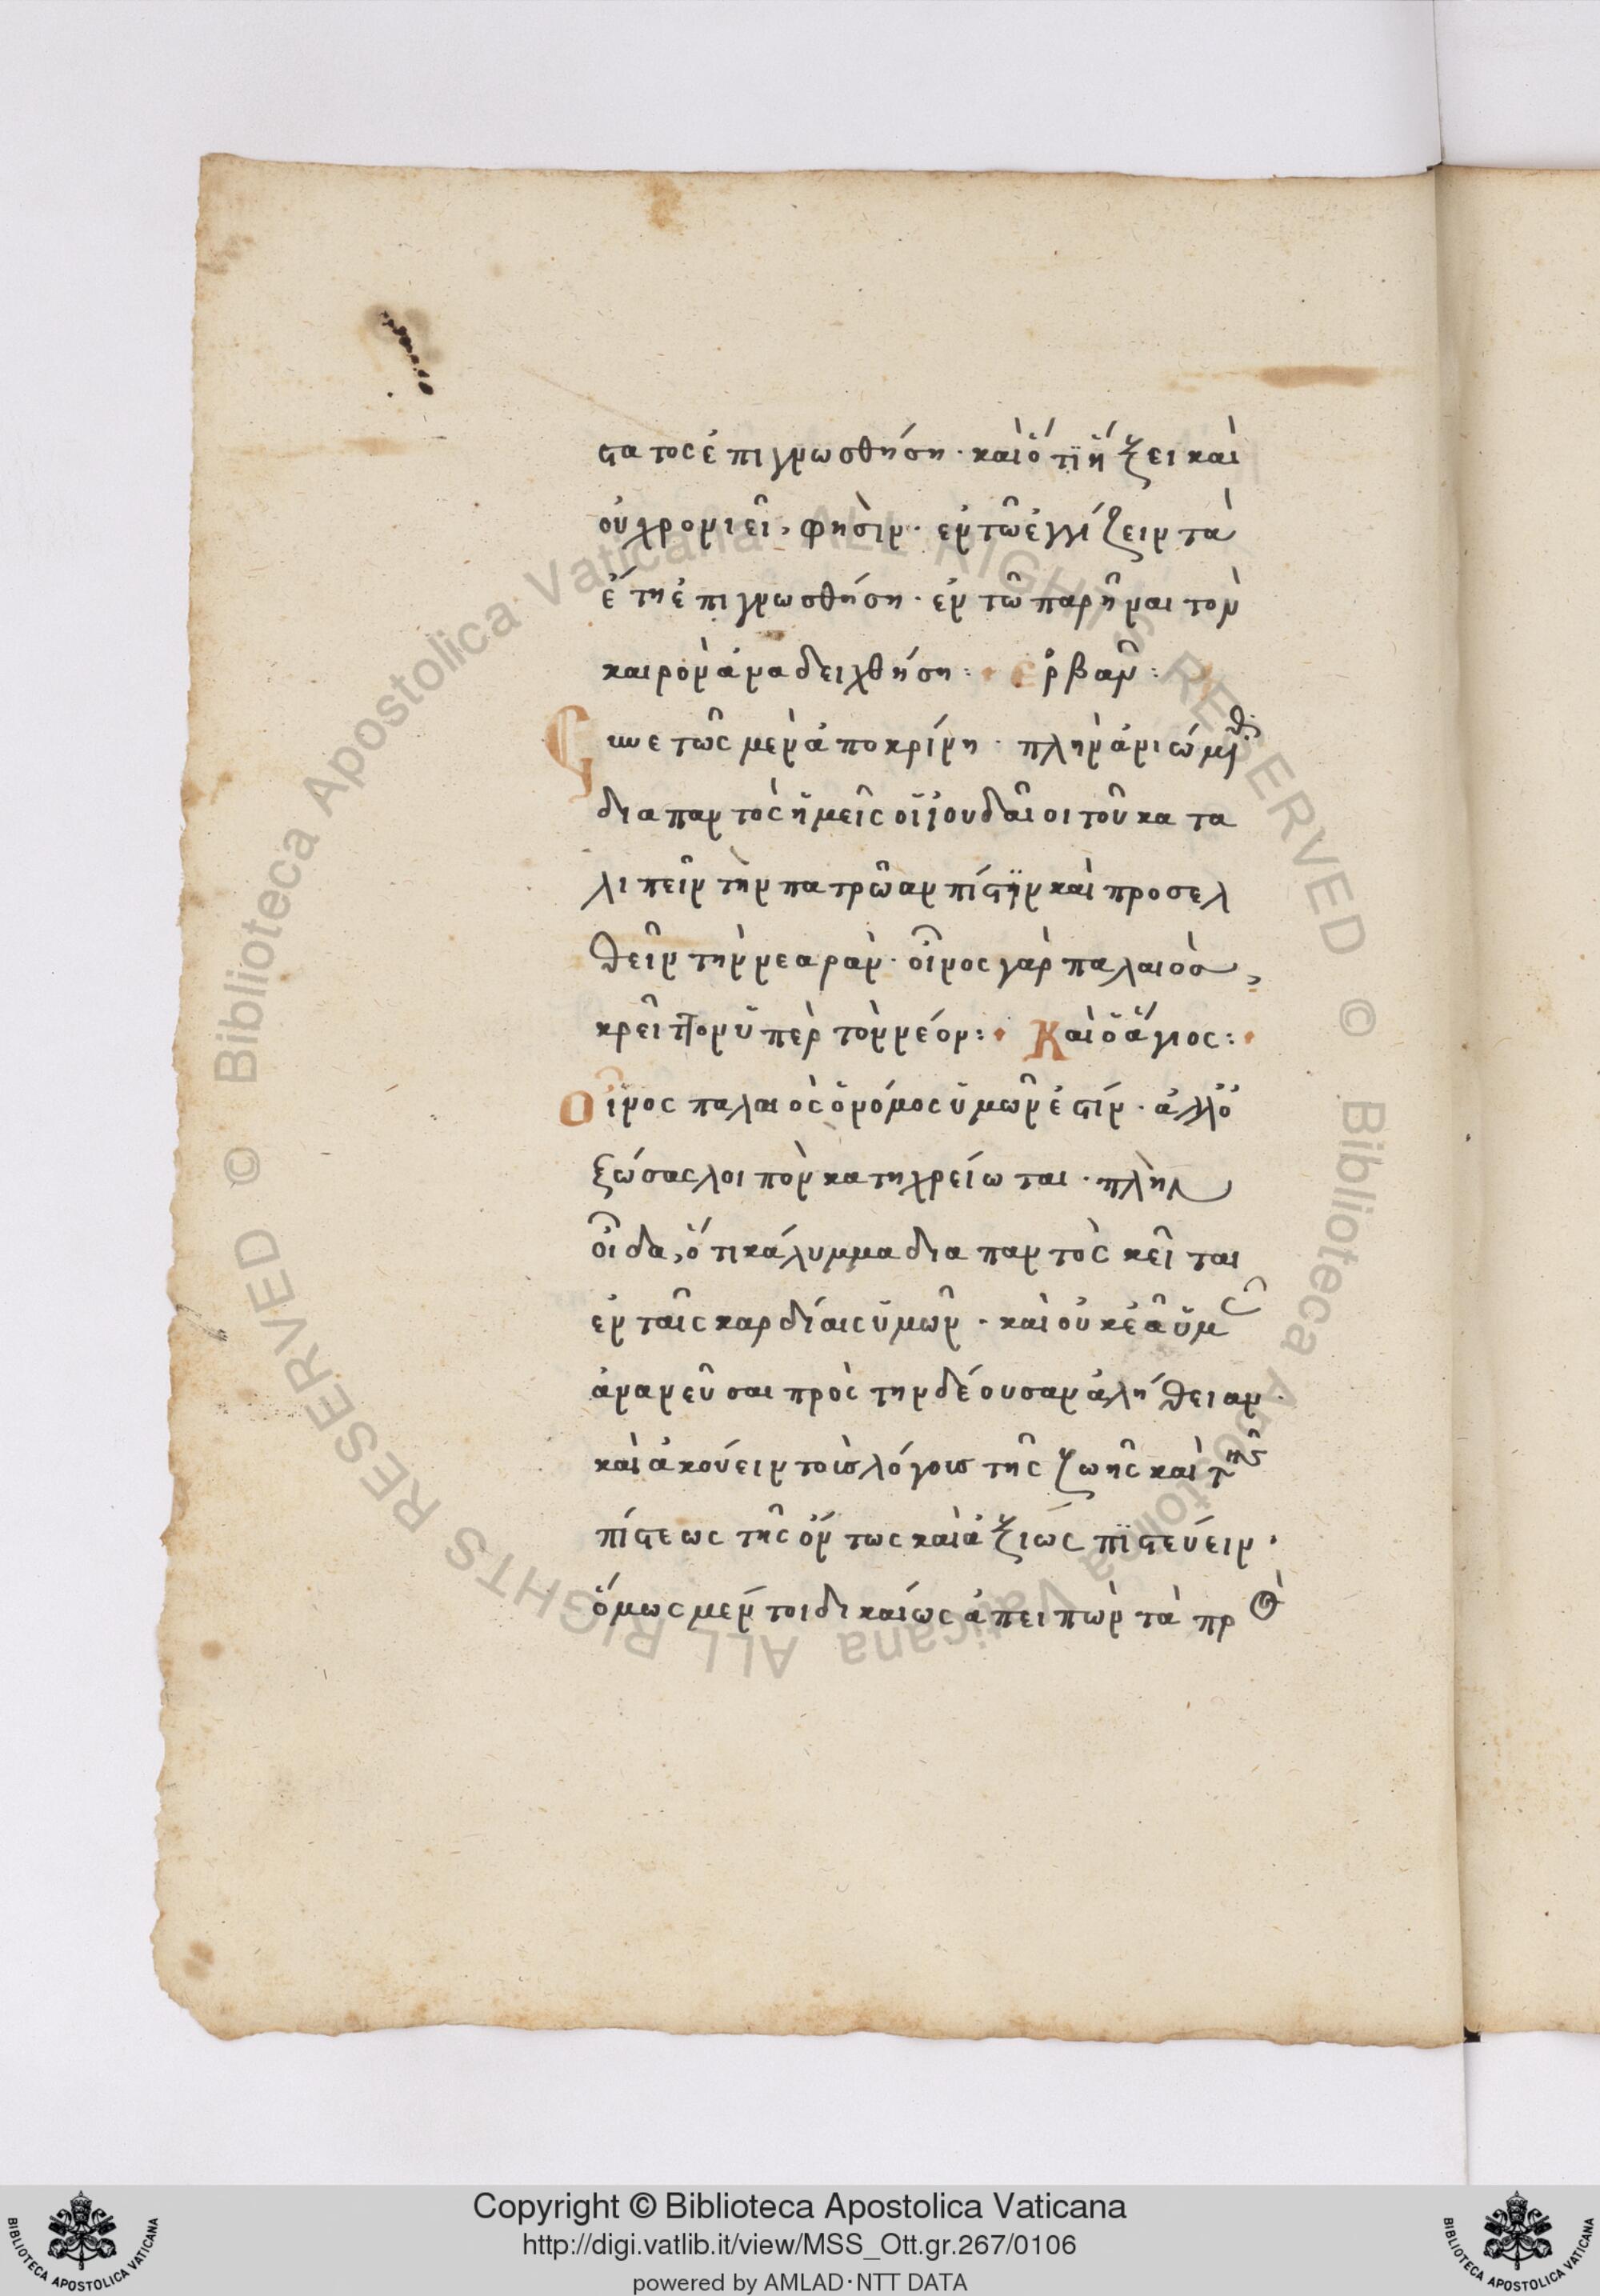 στατος ἐπιγνωσθήση · καὶ ὅτι ἥξει καὶ
οὐ χρονιεῖ, φησὶν · ἐν τῶ ἐγγίζειν τὰ
ἔτη ἐπιγνωσθήση · ἐν τῶ παρῆναι τὸν
καιρὸν ἀναδειχθήση : ἑρβὰν :
Συνετῶς μὲν ἀποκρίνη · πλὴν ἀνιώμεθ
διαπαντὸς ἡμεῖς οἱ ἰουδαῖοι τοῦ κατα
λιπεῖν τὴν πατρῶαν πίστιν καὶ προσελ
θεῖν τὴν νεαρὰν · οἶνος γὰρ παλαιὸς,
κρεῖττον ὑπὲρ τὸν νέον : Καὶ ὁ ἅγιος :
Οἶνος παλαιὸς ὁ νόμος ὑμῶν ἐστίν · ἀλλ' ὀ
ξώσας λοιπὸν κατηχρείωται · πλὴν
οἶδα, ὅτι κάλυμμα διαπαντὸς κεῖται
ἐν ταῖς καρδίαις ὑμῶν · καὶ οὐκ ἐᾶ ὑμᾶς
ἀνανεῦσαι πρὸς τὴν δέουσαν ἀλήθειαν ·
καὶ ἀκούειν τοῖς λόγοις τῆς ζωῆς καὶ τῆς
πίστεως τῆς ὄντως καὶ ἀξίως πιστεύειν ·
ὅμως μέντοι δικαίως ἀπειπὼν τὰ πρ
© Biblioteca Apostolica Vaticana ALL RIGHTS RESERVED © Biblioteca Apostolica Vaticana ALL RIGHTS RESERVED
Copyright © Biblioteca Apostolica Vaticana
http://digi.vatlib.it/view/MSS_Ott.gr.267/0106
powered by AMLAD·NTT DATA
BIBLIOTECA APOSTOLICA VATICANA
BIBLIOTECA APOSTOLICA VATICANA